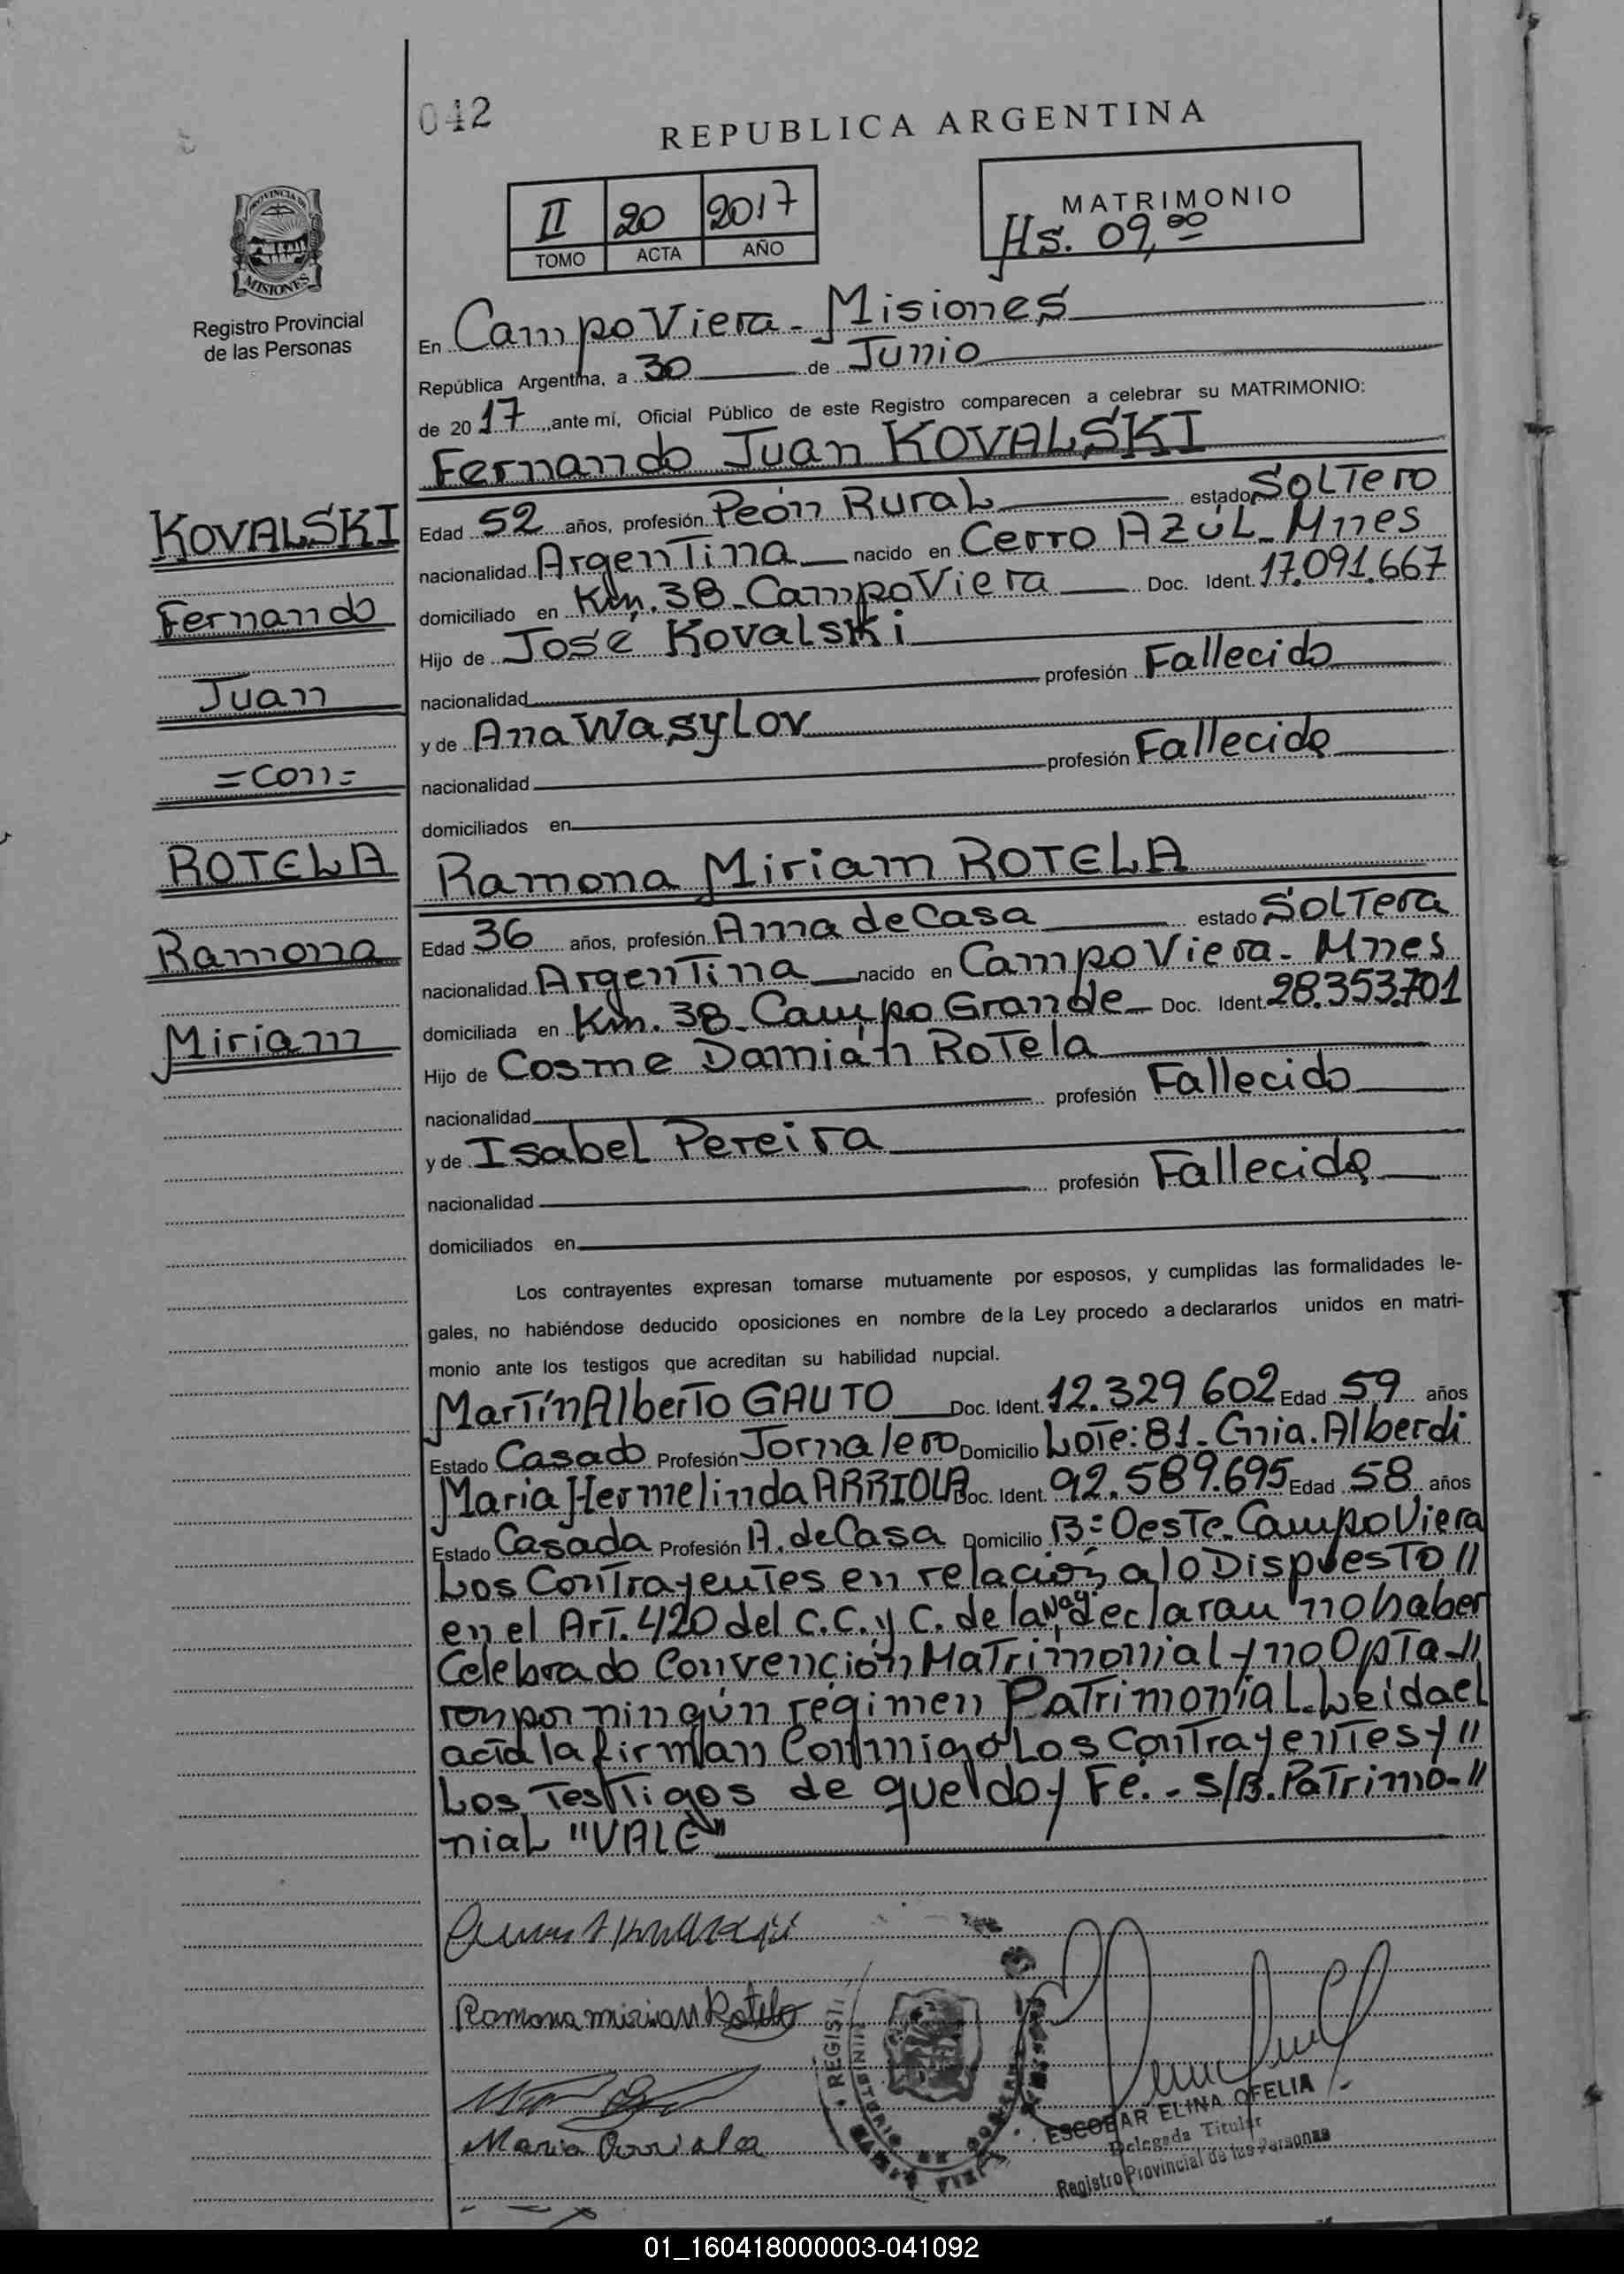 042
REPUBLICA ARGENTINA
II 20 2017
TOMO ACTA AÑO
MATRIMONIO
Hs. 09,00
PROVINCIA DE
MISIONES
Registro Provincial
de las Personas
En Campo Viera - Misiones
República Argentina, a 30 de Junio
de 2017, ante mí, Oficial Público de este Registro comparecen a celebrar su MATRIMONIO:
Fernando Juan KOVALSKI
KOVALSKI
Fernando
Juan
=con=
ROTELA
Ramona
Miriam
Edad 52 años, profesión Peón Rural estado Soltero
nacionalidad Argentina nacido en Cerro Azúl - Mnes
domiciliado en Km. 38 - Campo Viera Doc. Ident. 17.091.667
Hijo de José Kovalski
nacionalidad profesión Fallecido
y de Ana Wasylov
nacionalidad profesión Fallecida
domiciliados en
Ramona Miriam ROTELA
Edad 36 años, profesión Ama de Casa estado Soltera
nacionalidad Argentina nacido en Campo Viera - Mnes
domiciliada en Km. 38 - Campo Grande - Doc. Ident. 28.353.701
Hijo de Cosme Damián Rotela
nacionalidad profesión Fallecido
y de Isabel Pereira
nacionalidad profesión Fallecida
domiciliados en
Los contrayentes expresan tomarse mutuamente por esposos, y cumplidas las formalidades le-
gales, no habiéndose deducido oposiciones en nombre de la Ley procedo a declararlos unidos en matri-
monio ante los testigos que acreditan su habilidad nupcial.
Martín Alberto GAUTO Doc. Ident. 12.329.602 Edad 59 años
Estado Casado Profesión Jornalero Domicilio Lote: 81 - Cnia. Alberdi
Maria Hermelinda ARRIOLA Doc. Ident. 92.589.695 Edad 58 años
Estado Casada Profesión A. de Casa Domicilio B: Oeste - Campo Viera
Los Contrayentes en relación a lo Dispuesto //
en el Art. 420 del C.C. y C. de la Nac. declaran no haber
Celebrado Convención Matrimonial y no Opta-//
ron por ningún régimen Patrimonial. Leida el
acta la firman Conmigo Los Contrayentes y //
Los Testigos de que doy Fé. - S/B. Patrimo-//
nial "VALE"
Ramona miriam Rotela
Maria Arriola
ESCOBAR ELINA OFELIA
Delegada Titular
Registro Provincial de las Personas
01_160418000003-041092